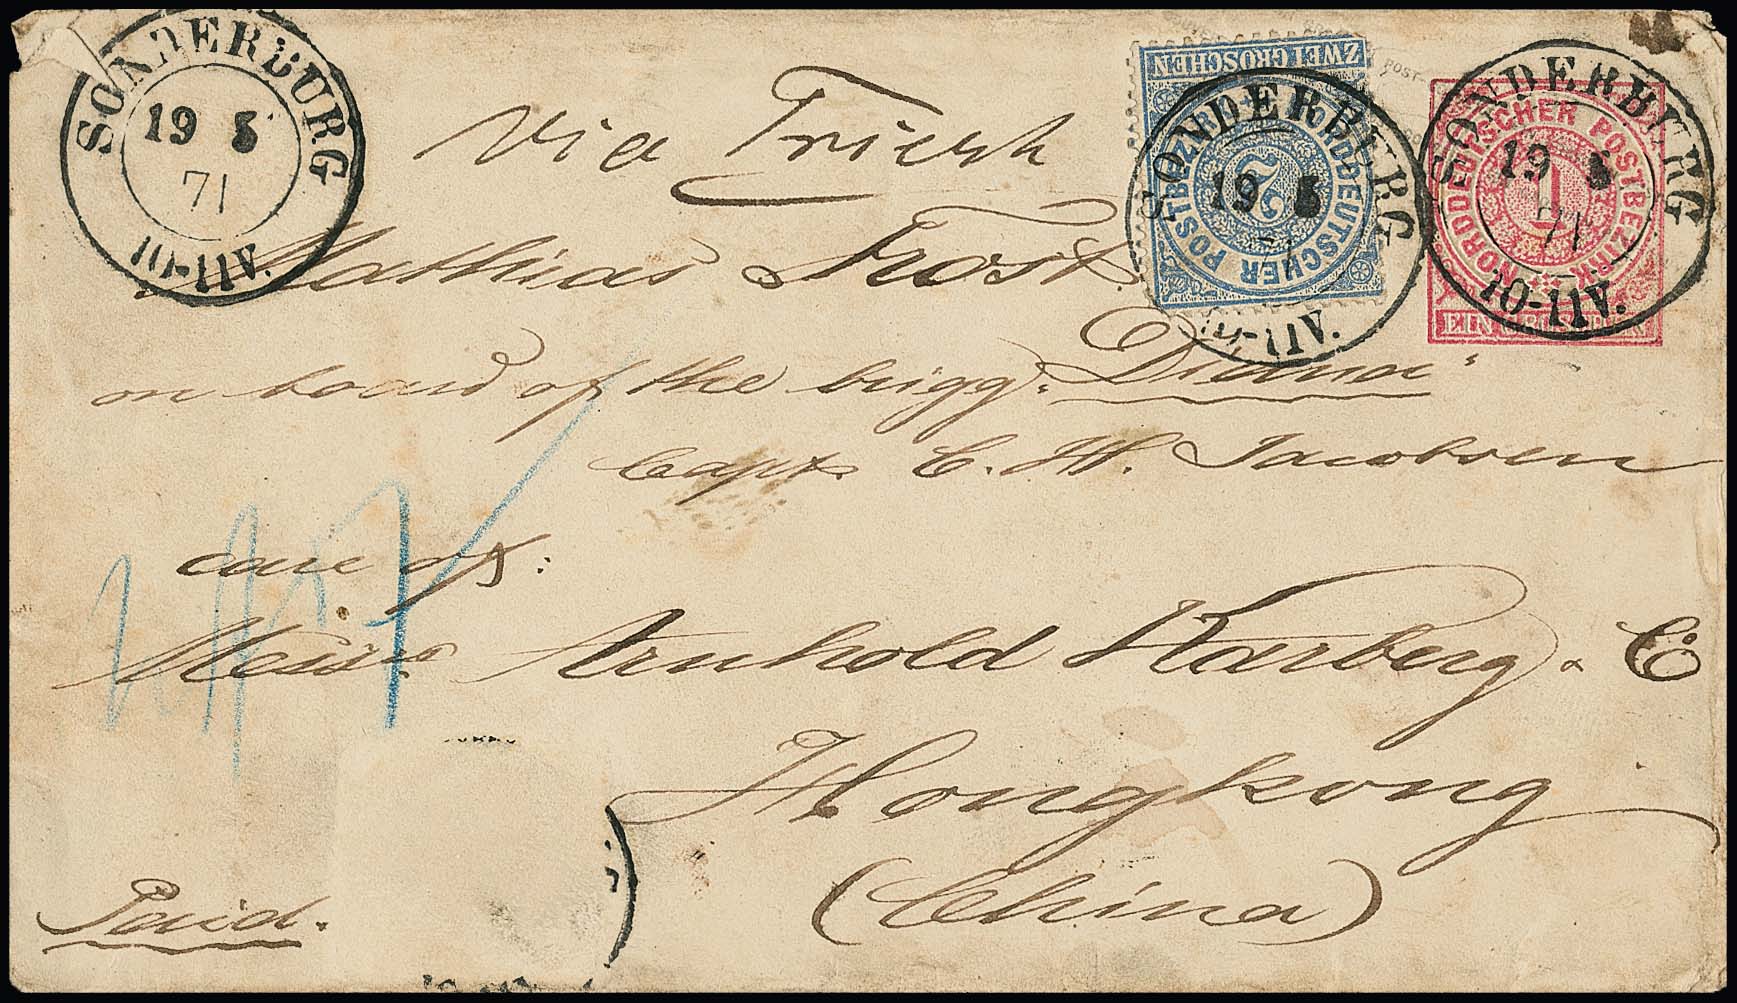 SONDERBURG
19 5
71
10-11V.
Via Triest
ZWEI GROSCHEN
NORDDEUTSCHER POSTBEZIRK
2
SONDERBURG
19 5
71
10-11V.
NORDDEUTSCHER POSTBEZIRK
1
EIN GROSCHEN
SONDERBURG
19 5
71
10-11V.
Mathias Frost.
on board of the brigg „Diana“
Capt. C. H. Jacobsen
care of:
Messrs Arnhold Karberg & C
Hongkong
(China)
Paid.